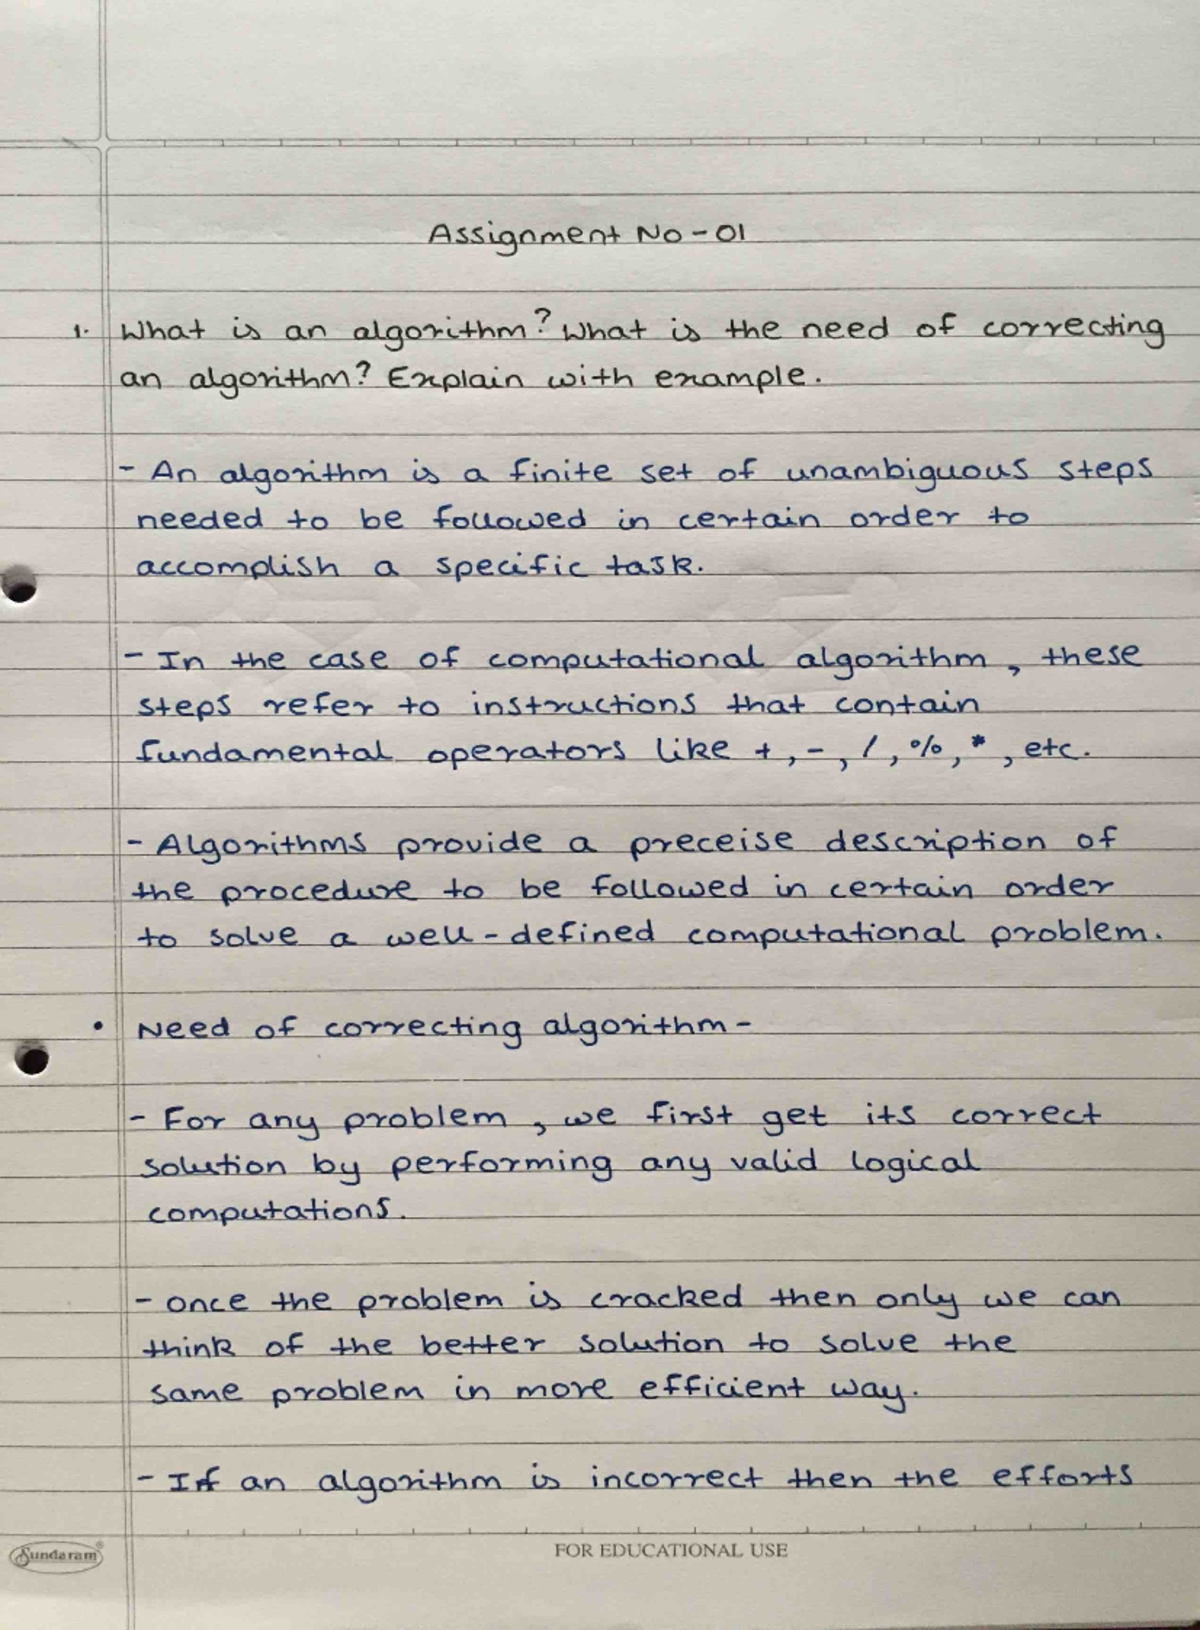 Assignment No - 01
1. What is an algorithm? What is the need of correcting
an algorithm? Explain with example.
- An algorithm is a finite set of unambiguous steps
needed to be followed in certain order to
accomplish a specific task.
- In the case of computational algorithm, these
steps refer to instructions that contain
fundamental operators like +, -, /, %, *, etc.
- Algorithms provide a preceise description of
the procedure to be followed in certain order
to solve a well-defined computational problem.
• Need of correcting algorithm -
- For any problem, we first get its correct
solution by performing any valid logical
computations.
- once the problem is cracked then only we can
think of the better solution to solve the
same problem in more efficient way.
- If an algorithm is incorrect then the efforts
Sundaram®
FOR EDUCATIONAL USE